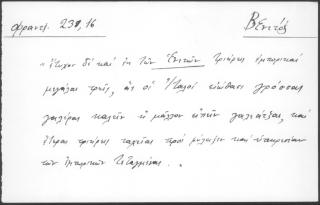 φραντζ. 239, 16 Βενετός
"ἔτυχον δὲ καὶ ἐκ τῶν Ἐνετῶν τριήρεις ἐμπορικαὶ
μεγάλαι τρεῖς, ἃς οἱ Ἰταλοὶ εἰώθασι γρόσσας
γαλέρας καλεῖν ἢ μᾶλλον εἰπεῖν γαλεάτζας, καὶ
ἕτεραι τριήρεις ταχεῖαι πρὸς φύλαξιν καὶ ὑπηρεσίαν
τῶν ἐμπορικῶν τεταγμέναι . .